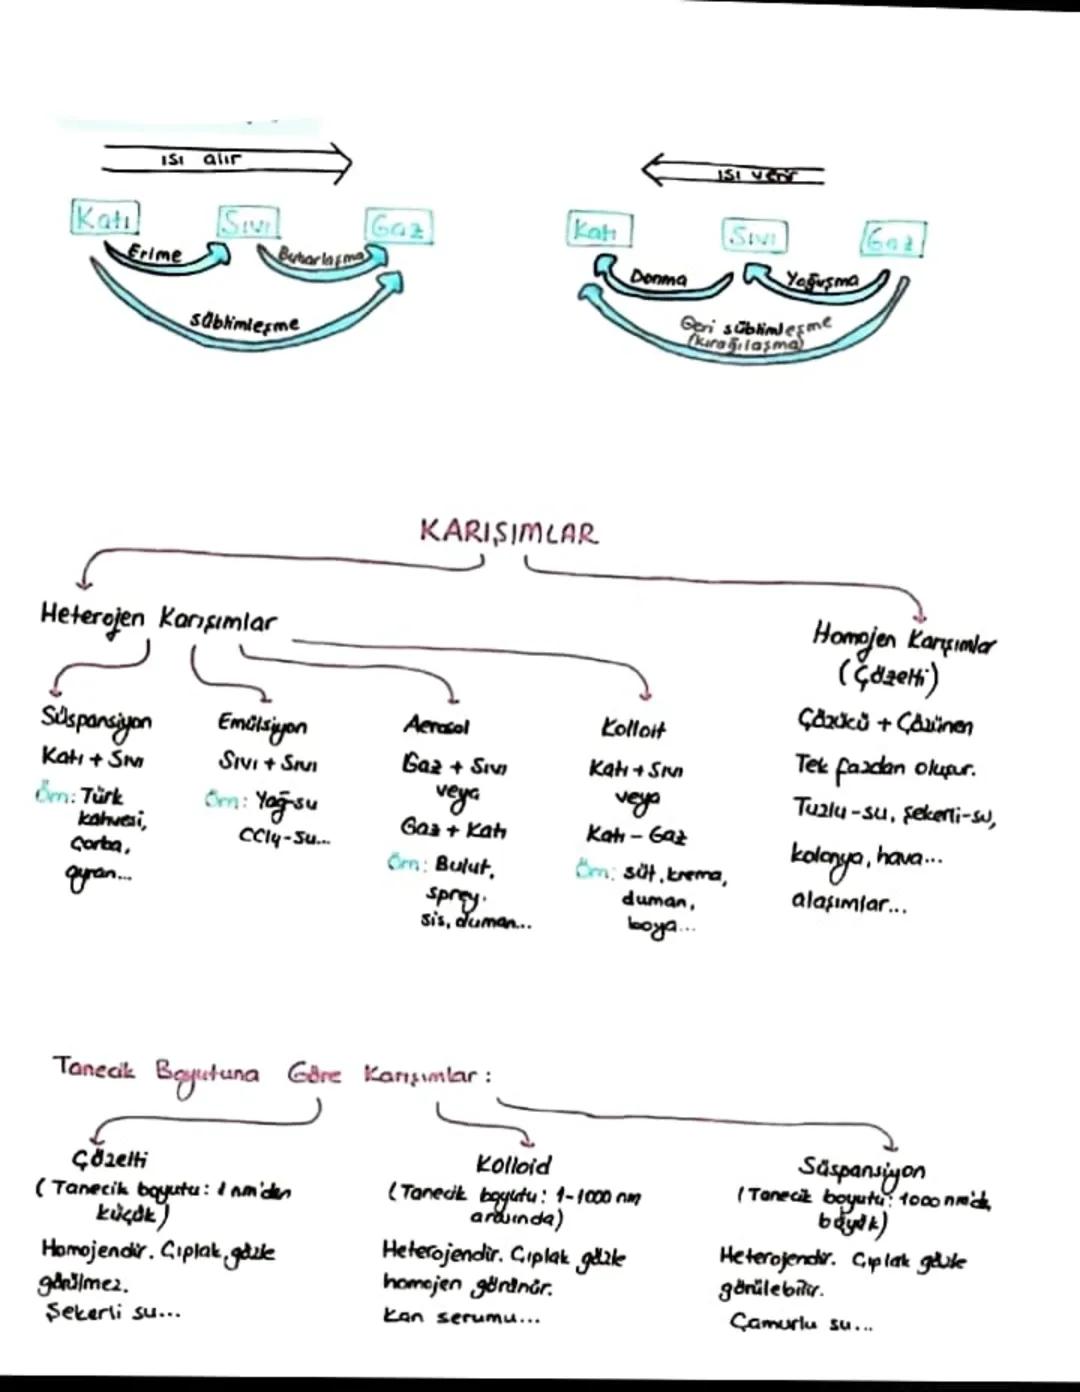 ısı alır
ısı verir
Katı
Sıvı
Gaz
Katı
Sıvı
Gaz
Erime
Buharlaşma
Donma
Yoğuşma
süblimleşme
Geri süblimleşme
(kırağılaşma)
KARIŞIMLAR
Heterojen Karışımlar
Homojen Karışımlar
(Çözelti)
Çözücü + Çözünen
Tek fazdan oluşur.
Tuzlu-su, şekerli-su,
kolonya, hava...
alaşımlar...
Süspansiyon
Katı + Sıvı
Örn: Türk
kahvesi,
Çorba,
ayran...
Emülsiyon
Sıvı + Sıvı
Örn: Yağ-su
CCl4-su...
Aerosol
Gaz + Sıvı
veya
Gaz + Katı
Örn: Bulut,
sprey.
sis, duman...
Kolloit
Katı + Sıvı
veya
Katı - Gaz
Örn: süt, krema,
duman,
boya...
Tanecik Boyutuna Göre Karışımlar :
Çözelti
(Tanecik boyutu: 1 nm'den
küçük)
Homojendir. Çıplak gözle
görülmez.
Şekerli su...
Kolloid
(Tanecik boyutu: 1-1000 nm
arasında)
Heterojendir. Çıplak gözle
homojen görünür.
Kan serumu...
Süspansiyon
(Tanecik boyutu: 1000 nm'dn
büyük)
Heterojendir. Çıplak gözle
görülebilir.
Çamurlu su...